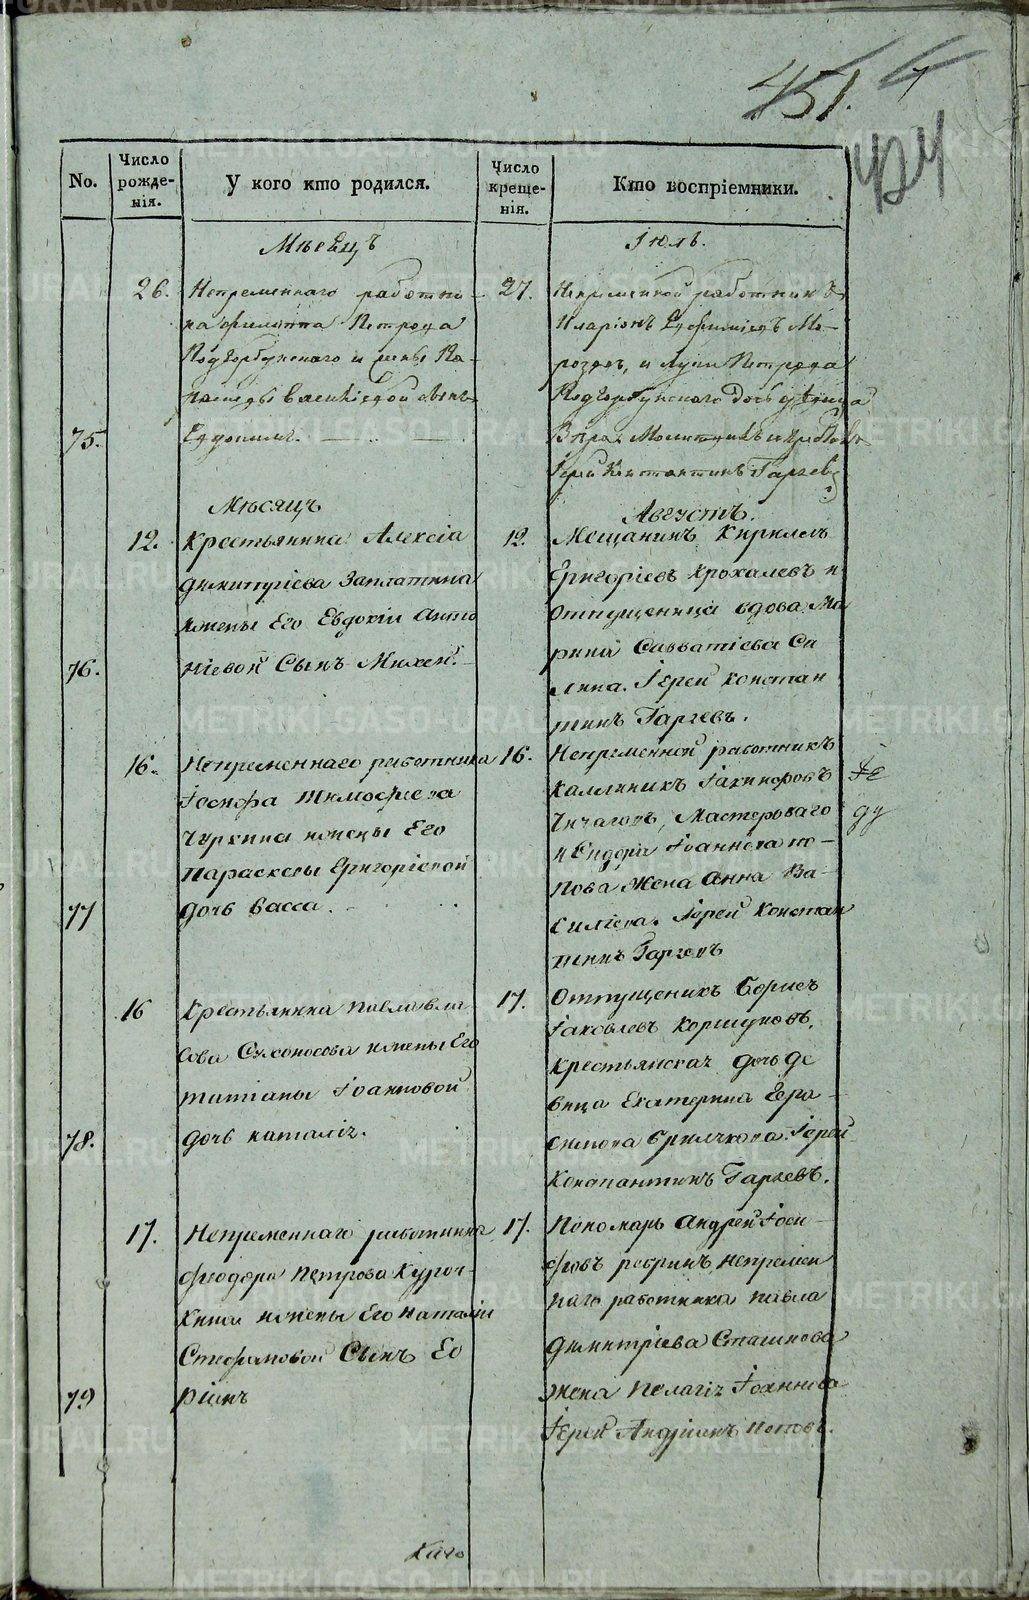 451.
424
No.
Число рожденія.
У кого кто родился.
Число крещенія.
Кто воспріемники.
Мѣсяцъ Іюль.
26. Непременнаго работни-
ка Филиппа Петрова
Подгорбунскаго и жены
75. Евдокимъ.
27. Непременной работникъ
Иларіонъ Мо-
розовъ, и Петрова
Подгорбунскаго дочь девица
Іерей Константинъ Гаряевъ
Мѣсяцъ Августъ.
12. Крестьянина Алексіа
Димитріева Заплатина
жены Его Евдокіи Анто
76. ніевой Сынъ Михей.
12. Мещанинъ Кириллъ
Григоріевъ Крохалевъ и
Отпущеница вдова Ма
рина Савватіева Си
лина. Іерей Констан
тинъ Гаряевъ.
16. Непременнаго работника
Іосифа Тимофеева
Чуркина и жены Его
Параскевы Григоріевой
77 дочь Васса.
16. Непременной работникъ
Каллиникъ Іакинфовъ
Чичаговъ, Мастероваго
Іоаннова по-
пова Жена Анна Ва-
силіева. Іерей Констан
тинъ Гаряевъ
16 Крестьянина Павла Вла
сова Сухоносова и жены Его
Татіаны Іоанновой
78. дочь Наталіа.
17. Отпущеникъ Борисъ
Іаковлевъ Коршуновъ,
крестьянская дочь де
вица Екатерина Гера-
симова Іерей
Константинъ Гаряевъ.
17. Непременнаго работника
Феодора Петрова Куроч-
кина и жены Его Наталіи
Стефановой Сынъ Ео
79 ріанъ
17. Пономарь Андрей Іоси-
фовъ Ребринъ, непремен
наго работника Павла
Димитріева Сташкова
жена Пелагіа
Іерей Андріанъ Поповъ.
Каго
METRIKI.GASO-URAL.RU